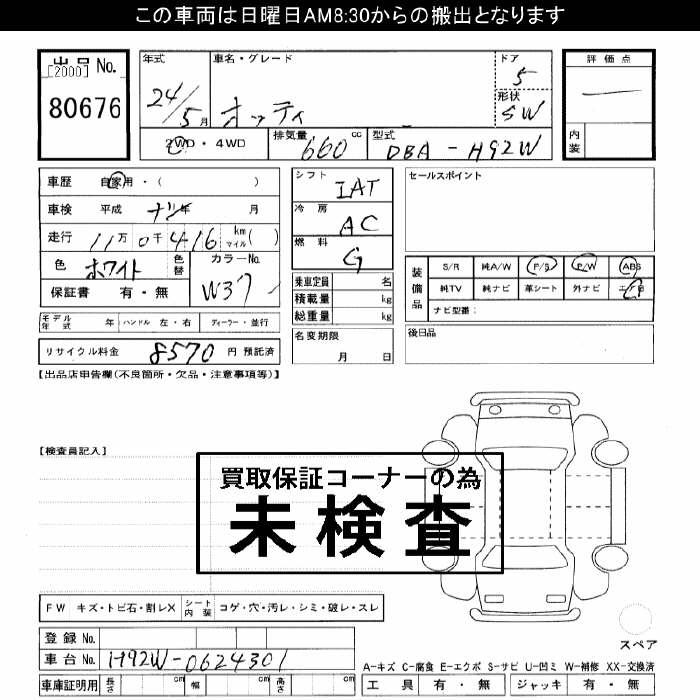 この車両は日曜日AM8:30からの搬出となります
出品No.
[2000]
80676
年式 24/5月
車名・グレード オッティ
ドア 5
形状 SW
評価点
内装
2WD・4WD
排気量 660 cc
型式 DBA-H92W
車歴 自家用・( )
車検 平成 ナシ年 月
走行 11万0千416 km マイル( )
色 ホワイト 色替 カラーNo. W37
保証書 有・無
モデル年式 年 ハンドル 左・右 ディーラー・並行
リサイクル料金 8570 円 預託済
シフト IAT
冷房 AC
燃料 G
乗車定員 名
積載量 kg
総重量 kg
名変期限 月 日
セールスポイント
装備品 S/R 純A/W P/S P/W ABS
純TV 純ナビ 革シート 外ナビ
ナビ型番:
後日品
【出品店申告欄(不良箇所・欠品・注意事項等)】
【検査員記入】
買取保証コーナーの為
未検査
FW キズ・トビ石・割レX シート内装 コゲ・穴・汚レ・シミ・破レ・スレ
登録No.
車台No. H92W-0624301
車庫証明用 長さ cm 幅 cm 高さ cm
スペア
A-キズ C-腐食 E-エクボ S-サビ U-凹ミ W-補修 XX-交換済
工具 有・無 ジャッキ 有・無